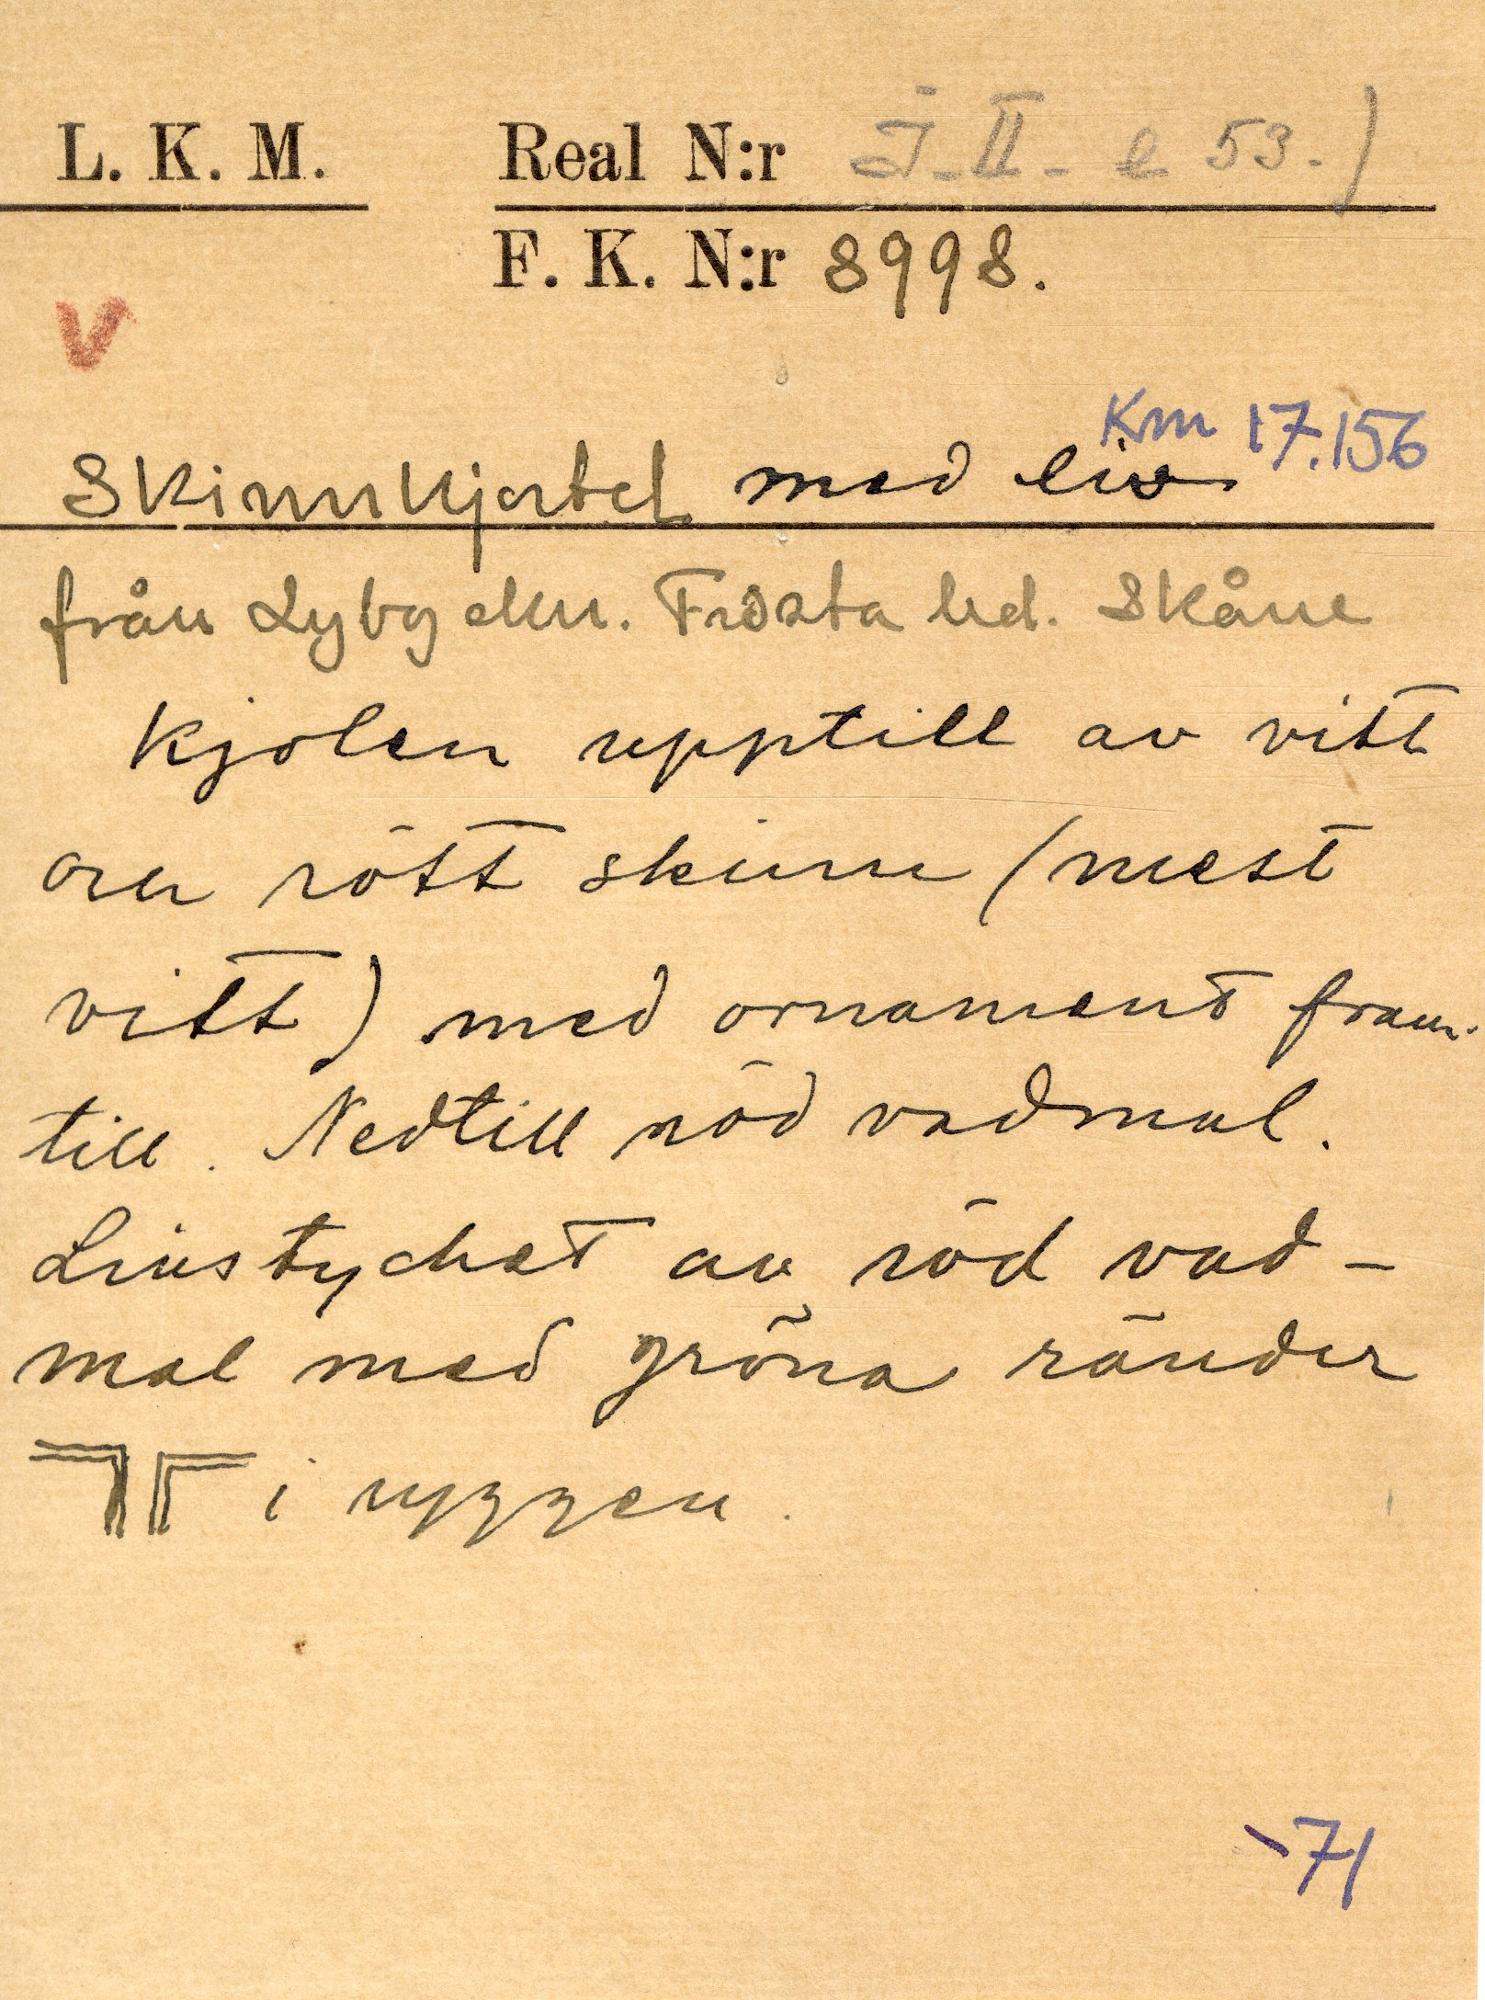 L. K. M. Real N:r J. II - e 53.)
F. K. N:r 8998.
V
Km 17.156
Skinnkjortel med liv
från Lyby skn. Frosta hd. Skåne
Kjolen upptill av vitt
och rött skinn (mest
vitt) med ornament fram-
till. Nedtill röd vadmal.
Livstycket av röd vad-
mal med gröna ränder
i ryggen.
-71